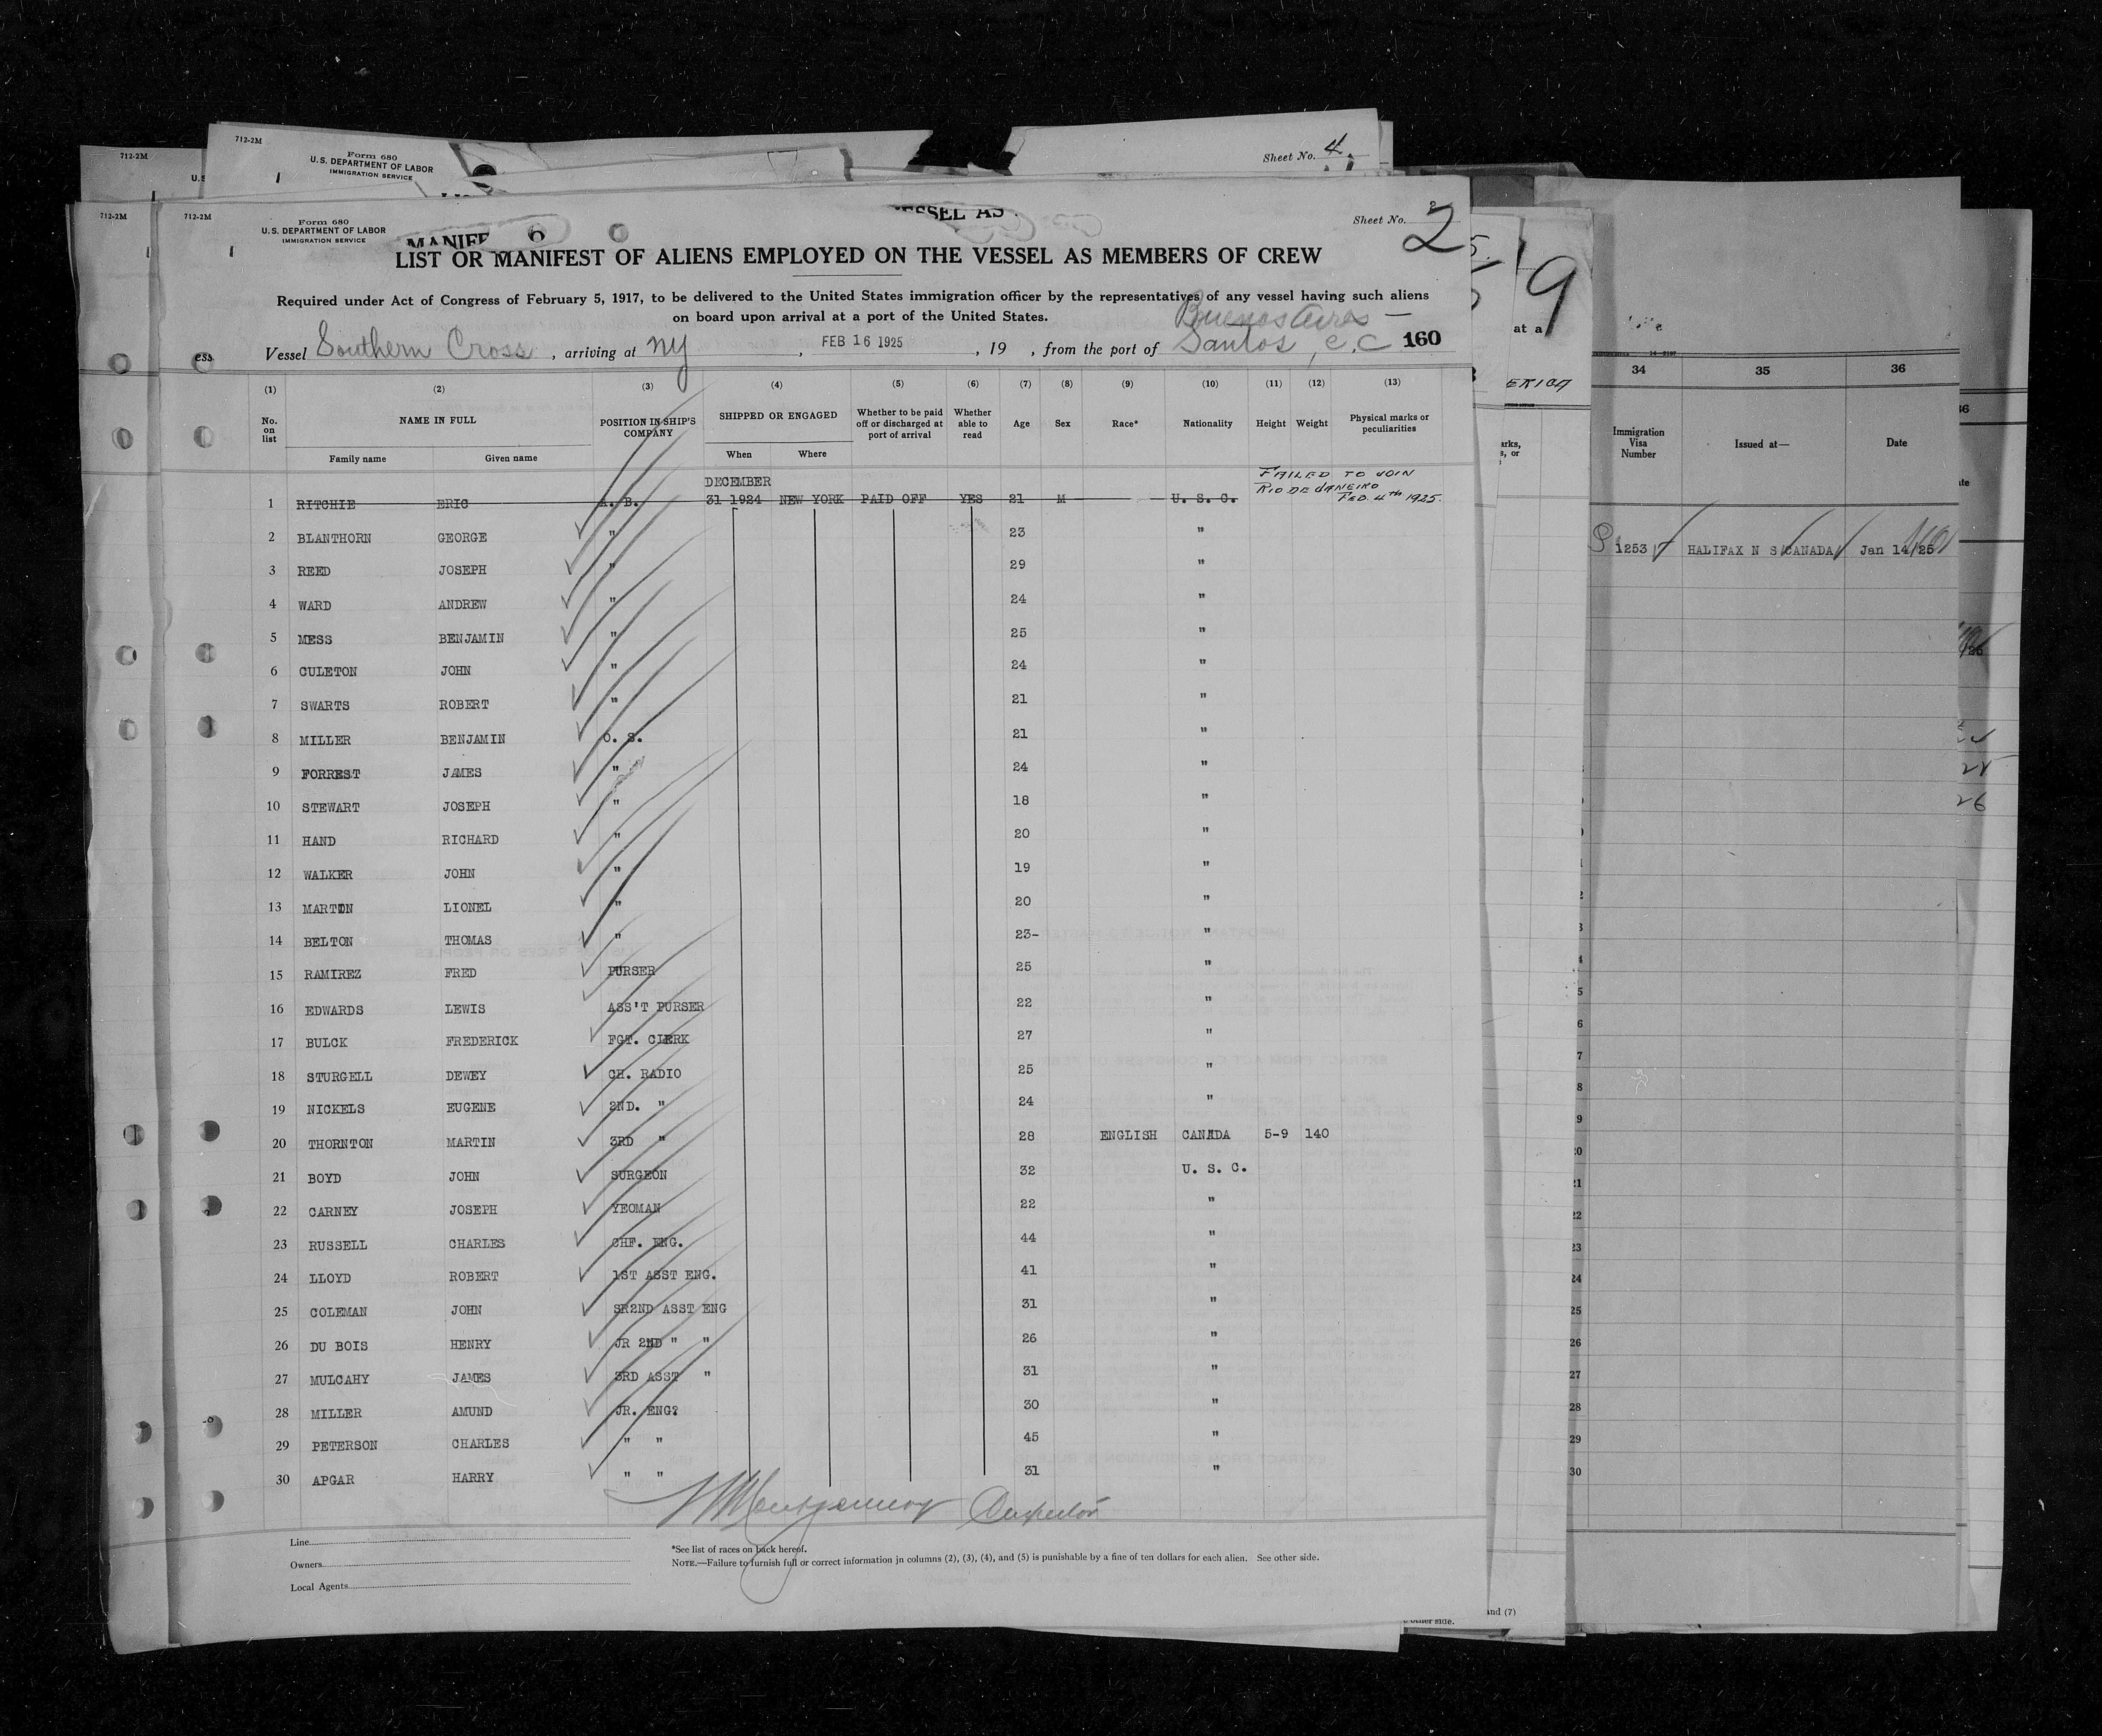 712-2M
712-2M
Form 680
U.S. DEPARTMENT OF LABOR
IMMIGRATION SERVICE
Sheet No. 4
712-2M
712-2M
Form 680
U. S. DEPARTMENT OF LABOR
IMMIGRATION SERVICE
Sheet No. 2
LIST OR MANIFEST OF ALIENS EMPLOYED ON THE VESSEL AS MEMBERS OF CREW
Required under Act of Congress of February 5, 1917, to be delivered to the United States immigration officer by the representatives of any vessel having such aliens
on board upon arrival at a port of the United States.
Buenos Aires —
Vessel Southern Cross, arriving at NY, FEB 16 1925, 19 , from the port of Santos, 160
(1) (2) (3) (4) (5) (6) (7) (8) (9) (10) (11) (12) (13)
No. on list NAME IN FULL POSITION IN SHIP'S COMPANY SHIPPED OR ENGAGED Whether to be paid off or discharged at port of arrival Whether able to read Age Sex Race* Nationality Height Weight Physical marks or peculiarities
Family name Given name When Where
DECEMBER FAILED TO JOIN
RIO DE JANEIRO
FEB. 4th 1925.
1 RITCHIE ERIC A. B. 31 1924 NEW YORK PAID OFF YES 21 M U. S. C.
2 BLANTHORN GEORGE " 23 "
3 REED JOSEPH " 29 "
4 WARD ANDREW " 24 "
5 MESS BENJAMIN " 25 "
6 CULETON JOHN " 24 "
7 SWARTS ROBERT " 21 "
8 MILLER BENJAMIN O. S. 21 "
9 FORREST JAMES " 24 "
10 STEWART JOSEPH " 18 "
11 HAND RICHARD " 20 "
12 WALKER JOHN " 19 "
13 MARTIN LIONEL " 20 "
14 BELTON THOMAS " 23- "
15 RAMIREZ FRED PURSER 25 "
16 EDWARDS LEWIS ASS'T PURSER 22 "
17 BULCK FREDERICK FGT. CLERK 27 "
18 STURGELL DEWEY CH. RADIO 25 "
19 NICKELS EUGENE 2ND. " 24 "
20 THORNTON MARTIN 3RD " 28 ENGLISH CANADA 5-9 140
21 BOYD JOHN SURGEON 32 U. S. C.
22 CARNEY JOSEPH YEOMAN 22 "
23 RUSSELL CHARLES CHF. ENG. 44 "
24 LLOYD ROBERT 1ST ASST ENG. 41 "
25 COLEMAN JOHN SR2ND ASST ENG 31 "
26 DU BOIS HENRY JR 2ND " " 26 "
27 MULCAHY JAMES 3RD ASST " 31 "
28 MILLER AMUND JR. ENG? 30 "
29 PETERSON CHARLES " " 45 "
30 APGAR HARRY " " 31 "
Montgomery Inspector
Line
Owners
Local Agents
*See list of races on back hereof.
NOTE.—Failure to furnish full or correct information in columns (2), (3), (4), and (5) is punishable by a fine of ten dollars for each alien. See other side.
9
at a
34 35 36
Immigration Visa Number Issued at— Date
1253 HALIFAX N S CANADA Jan 14/25
23
24
25
26
27
28
29
30
and (7)
other side.